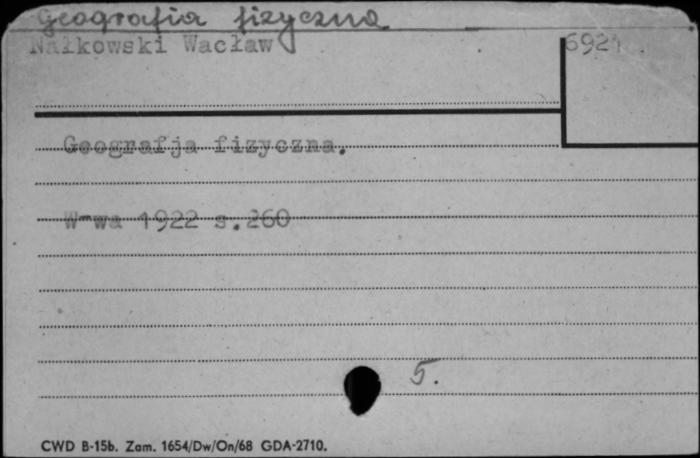 Geografia fizyczna
Nałkowski Wacław
Geografja fizyczna.
W-wa 1922 s.260
5.
CWD B-15b. Zam. 1654/Dw/On/68 GDA-2710.